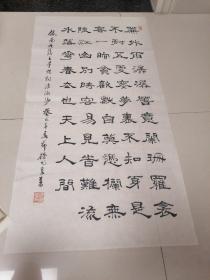 簾外雨潺潺春意闌珊羅衾
不耐五更寒夢裏不知身是
客一晌貪歡獨自莫憑欄無
限江山別時容易見時難流
水落花春去也天上人間
錄南唐後主李煜詞浪淘沙